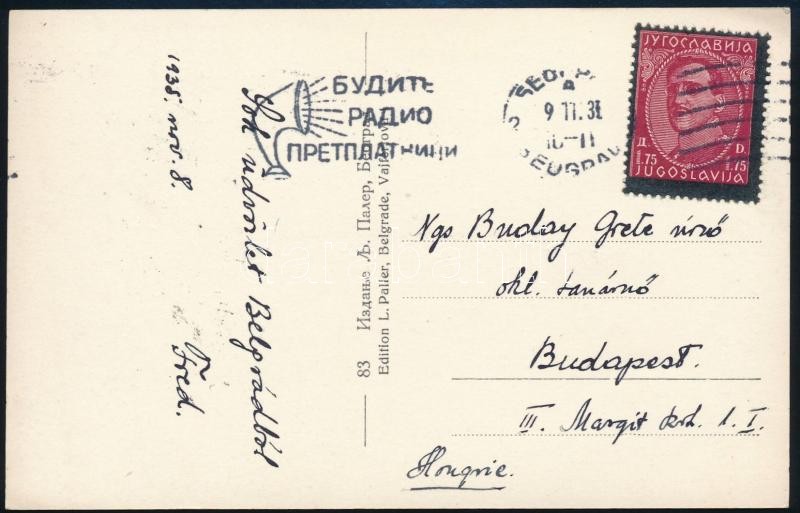 1935. nov. 8.
Sok üdvözlet Belgrádból
Fred.
БУДИТЕ
РАДИО
ПРЕТПЛАТНИЦИ
9 11. 3
BEOGRAD
ЈУГОСЛАВИЈА
Д. D.
1.75 1.75
JUGOSLAVIJA
83 Издање Љ. Палер, Београд
Edition L. Paller, Belgrade,
Ngs Buday Grete úrnő
okl. tanárnő
Budapest.
III. Margit krt. 1. I.
Hongrie.